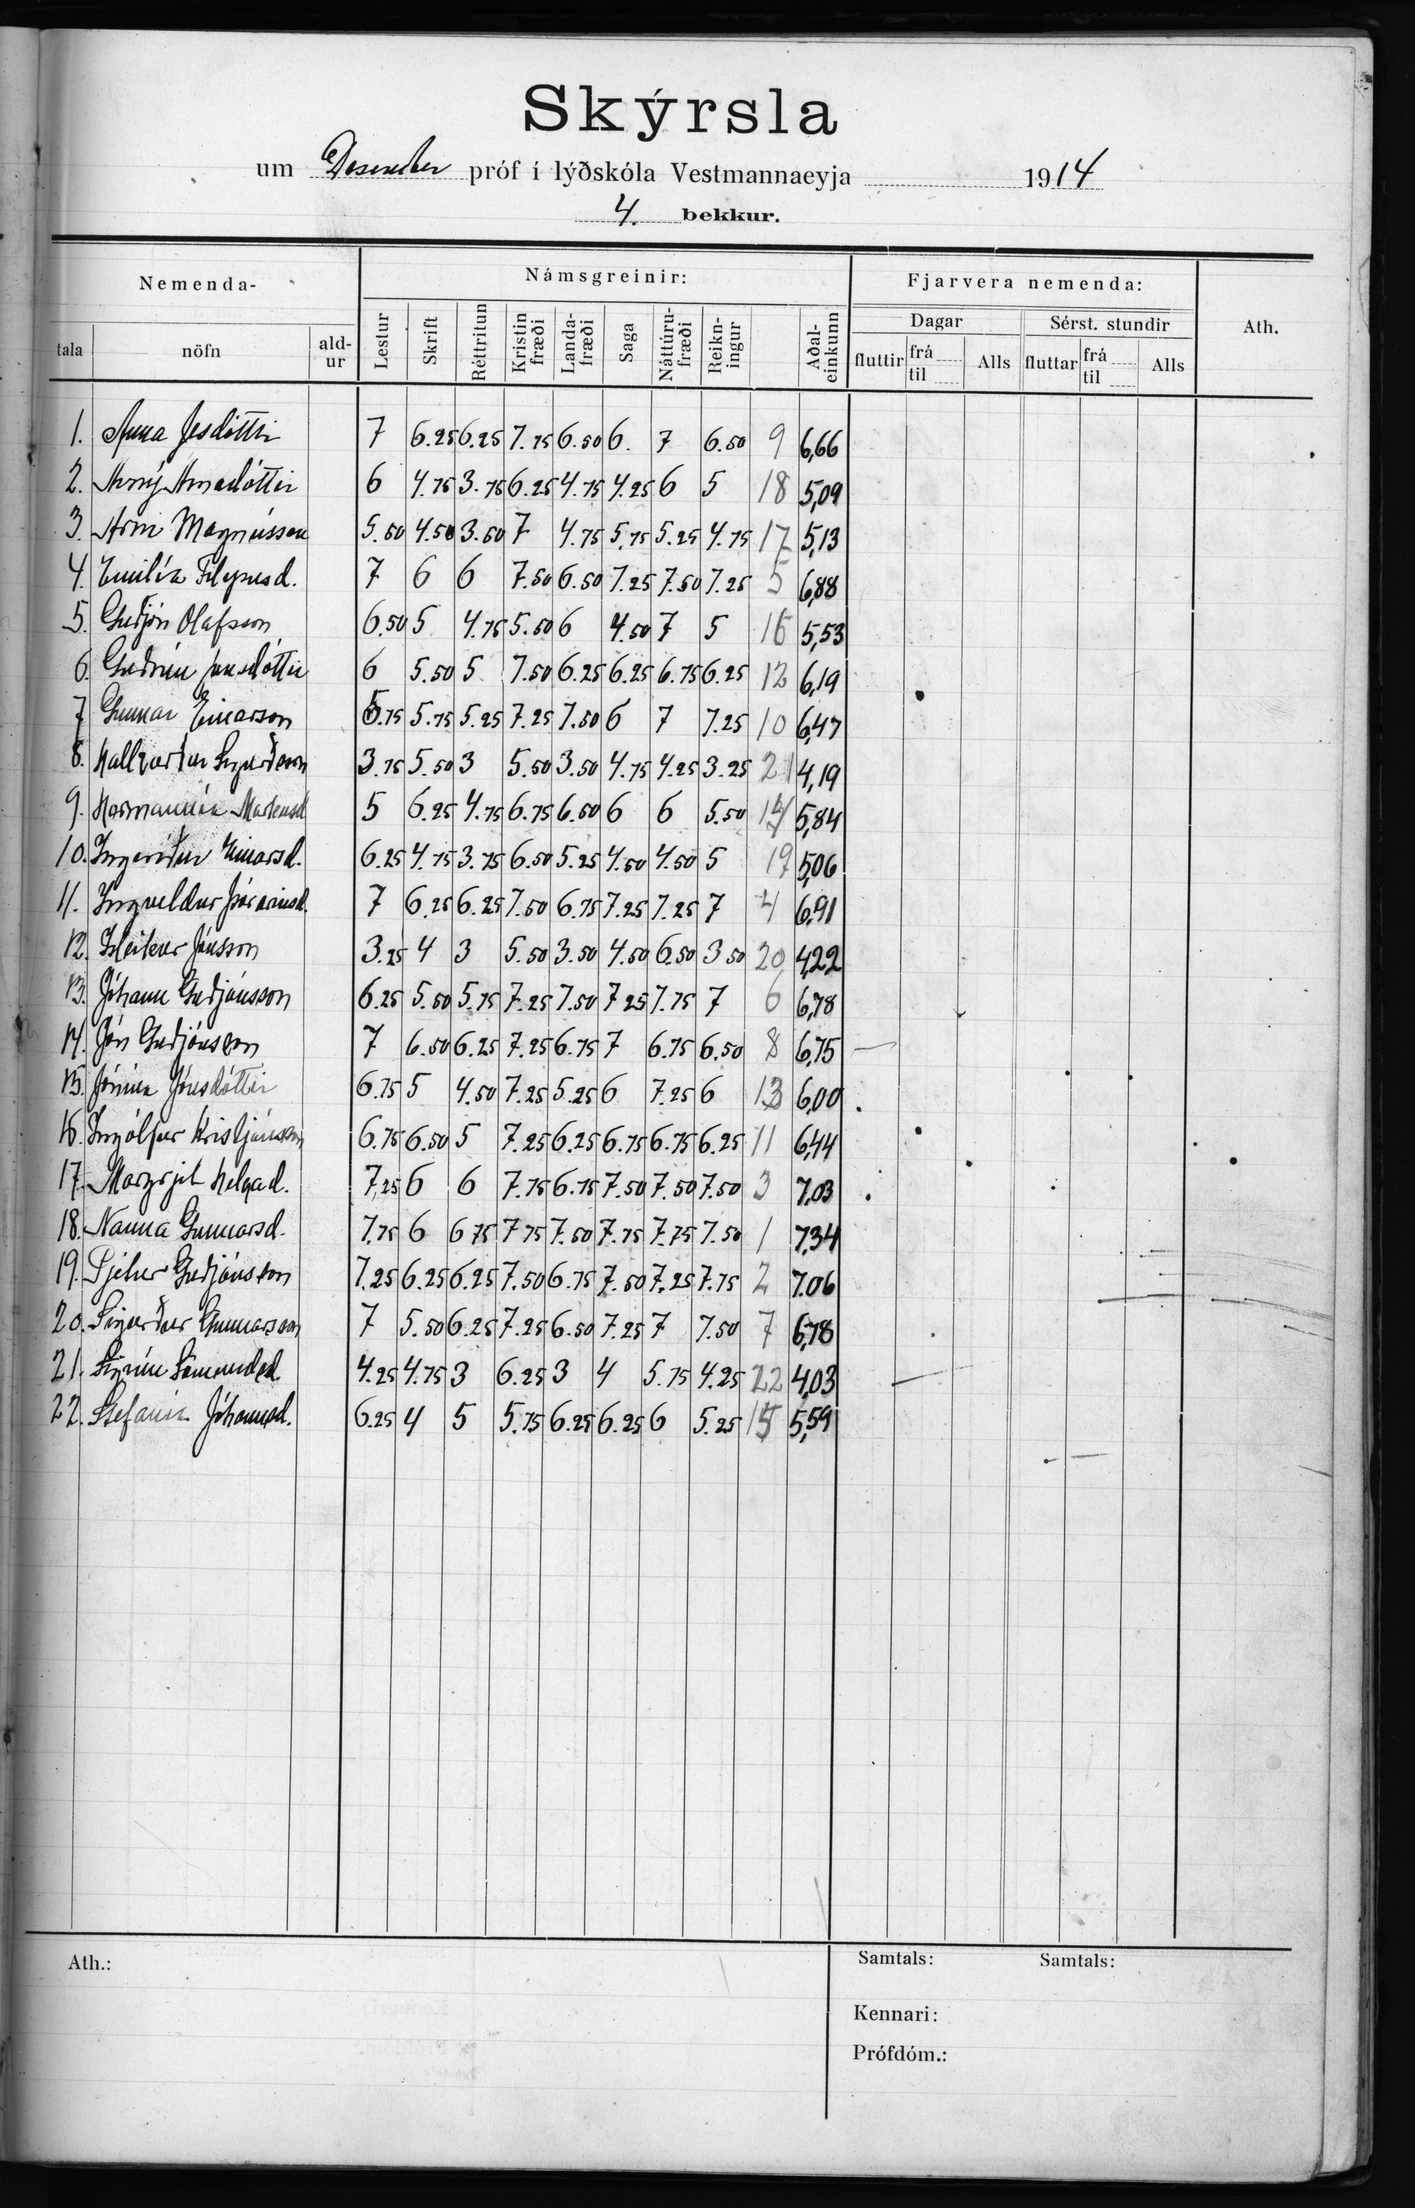 Skýrsla
um Desember próf í lýðskóla Vestmannaeyja 1914
4. bekkur.
Nemenda- Námsgreinir: Fjarvera nemenda: Ath.
Dagar Sérst. stundir
tala nöfn ald-ur Lestur Skrift Réttritun Kristin fræði Landa-fræði Saga Náttúru-fræði Reikn-ingur Aðal-einkunn fluttir frá til Alls fluttar frá til Alls
1. Anna Jesdóttir 7 6.25 6.25 7.75 6.50 6. 7 6.50 9 6,66
2. Árný Árnadóttir 6 4.75 3.75 6.25 4.75 4.25 6 5 18 5,09
3. Árni Magnússon 5.50 4.50 3.50 7 4.75 5.75 5.25 4.75 17 5,13
4. Emilía Filipusd. 7 6 6 7.50 6.50 7.25 7.50 7.25 5 6,88
5. Guðjón Olafsson 6.50 5 4.75 5.50 6 4.50 7 5 16 5,53
6. Guðrún Jónsdóttir 6 5.50 5 7.50 6.25 6.25 6.75 6.25 12 6,19
7 Gunnar Einarson 5.75 5.75 5.25 7.25 7.50 6 7 7.25 10 6,47
8. Hallvarður Sigurðsson 3.75 5.50 3 5.50 3.50 4.75 4.25 3.25 21 4,19
9. Hermannía 5 6.25 4.75 6.75 6.50 6 6 5.50 14 5,84
10. Ingiríður Einarsd. 6.25 4.75 3.75 6.50 5.25 4.50 4.50 5 19 5,06
11. Ingveldur Þórarinsd. 7 6.25 6.25 7.50 6.75 7.25 7.25 7 4 6,91
12. Ísleikur Jónsson 3.25 4 3 5.50 3.50 4.50 6.50 3.50 20 4,22
13. Jóhann Guðjónsson 6.25 5.50 5.75 7.25 7.50 7 25 7.75 7 6 6,78
14. Jón Guðjónsson 7 6.50 6.25 7.25 6.75 7 6.75 6.50 8 6,75
15. Jónína Jónsdóttir 6.75 5 4.50 7.25 5.25 6 7.25 6 13 6,00
16. Ingólfur Kristjánsson 6.75 6.50 5 7.25 6.25 6.75 6.75 6.25 11 6,44
17. Margrjet Helgad. 7,25 6 6 7.75 6.75 7.50 7.50 7.50 3 7,03
18. Nanna Gunnarsd. 7.75 6 6 75 7 75 7.50 7.75 7.75 7.50 1 7,34
19. Pjetur Guðjónsson 7.25 6.25 6.25 7.50 6.75 7.50 7.25 7.75 2 7.06
20. Sigurður Gunnarsson 7 5.50 6.25 7.25 6.50 7.25 7 7.50 7 6,78
21. Sigrún Sæmundsd. 4.25 4.75 3 6.25 3 4 5.75 4.25 22 4,03
22. Stefanía Jóhannsd. 6.25 4 5 5.75 6.25 6.25 6 5.25 15 5,59
Ath.: Samtals: Samtals:
Kennari:
Prófdóm.: